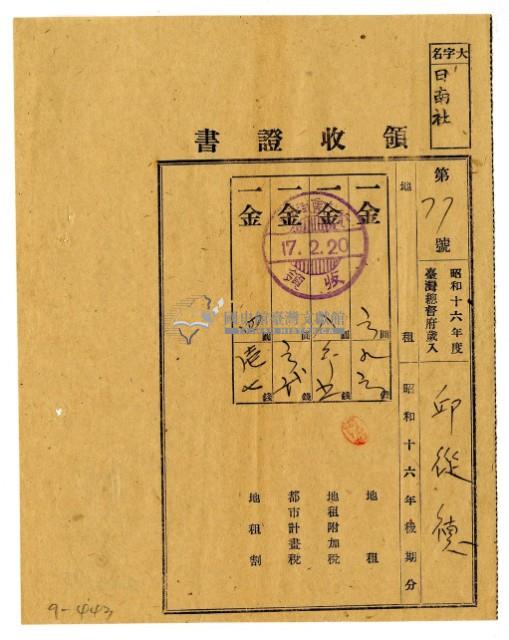 大字名
日南社
領收證書
第77號
昭和十六年度
臺灣總督府歲入
邱從德
地租
昭和十六年後期分
一金
圓
錢
地租
一金
圓
錢
地租附加稅
一金
圓
錢
都市計畫稅
一金
圓
錢
地租割
17.2.20
領收
國史館臺灣文獻館
TAIWAN HISTORICA
9-443